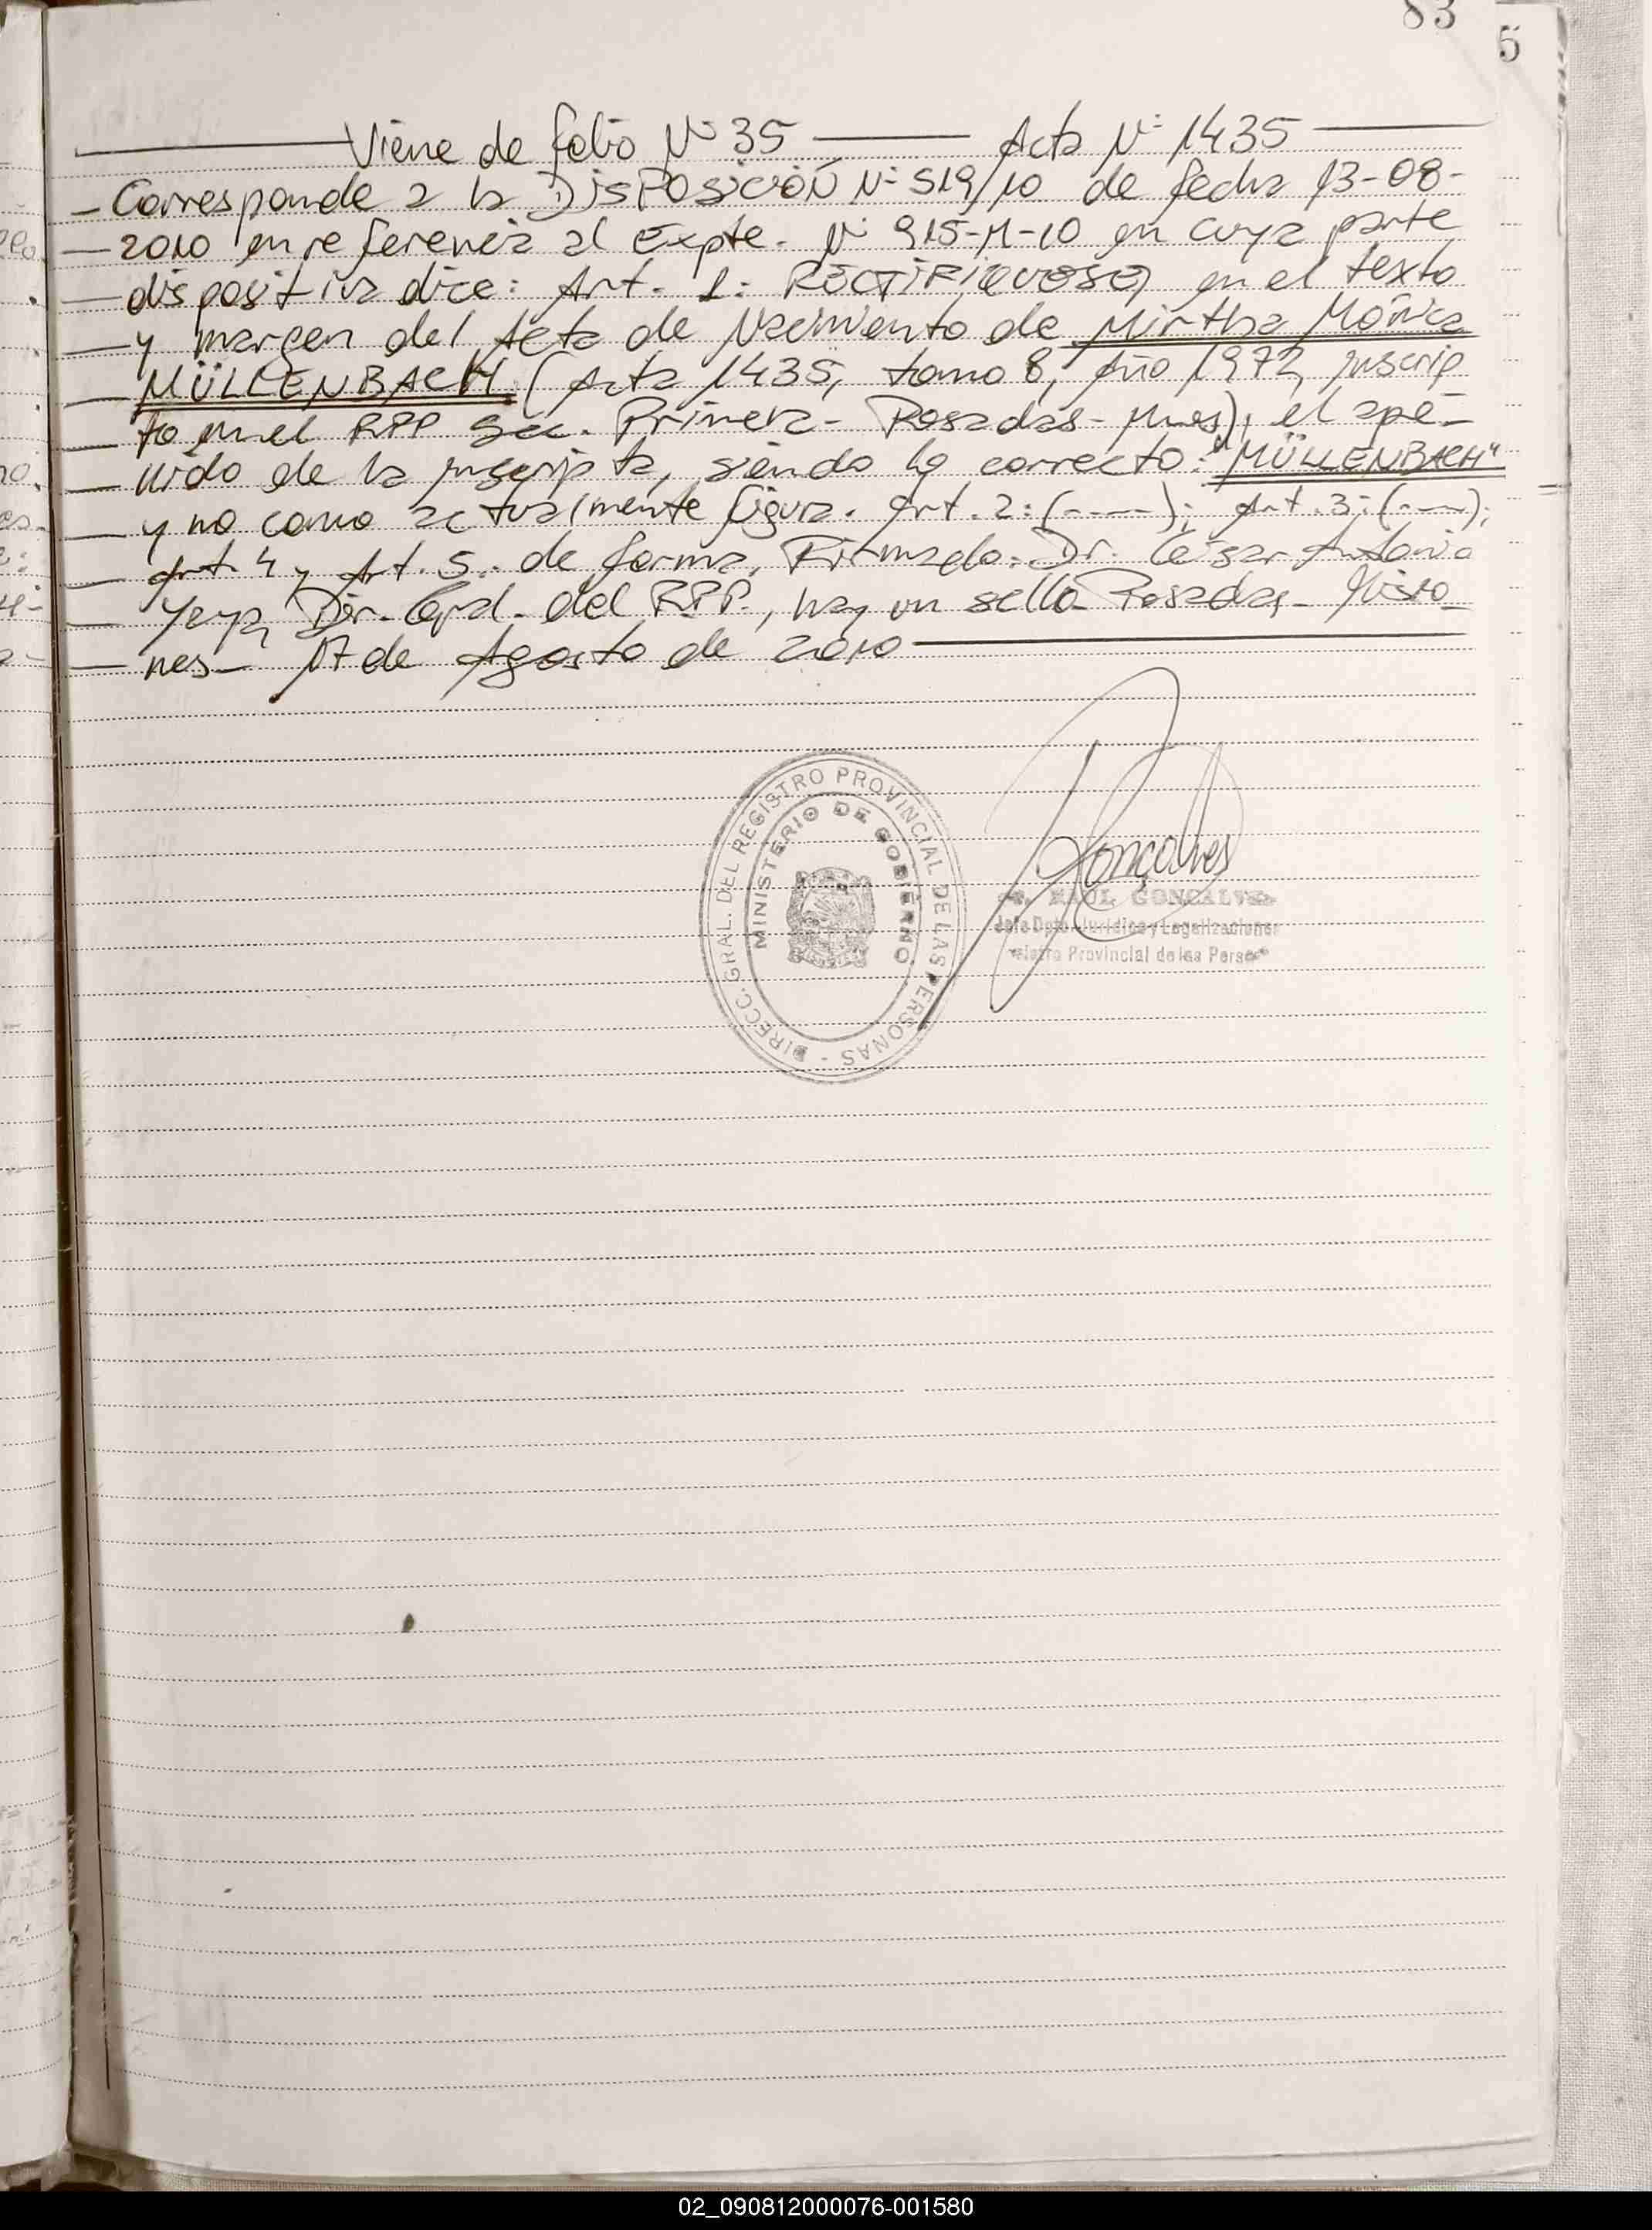 83
5
Viene de folio Nº 35 Acta Nº 1435
Corresponde a la DISPOSICIÓN Nº 519/10 de fecha 13-08-
2010 en referencia al Expte. Nº 915-M-10 en cuya parte
dispositiva dice: Art. 1: RECTIFIQUESE, en el texto
y margen del Acta de Nacimiento de Mirtha Mónica
MÜLLENBACH (Acta 1435, tomo 8, Año 1972, inscrip
to en el RPP Sec. Primera - Posadas - Mnes), el ape-
llido de la inscripta, siendo lo correcto: "MÜLLENBACH"
y no como actualmente figura. Art. 2: (----); Art. 3: (----);
Art. 4 y Art. 5: de forma, Firmado: Dr. César Antonio
Dir. Gral. del RPP., hay un sello. Posadas - Misio_
nes_ 17 de Agosto de 2010
DIRECC. GRAL. DEL REGISTRO PROVINCIAL DE LAS PERSONAS -
MINISTERIO DE GOBIERNO
Gonçalves
RAUL GONCALVES
Jefe Dpto. Jurídico y Legalizaciones
Provincial de las Person
02_090812000076-001580